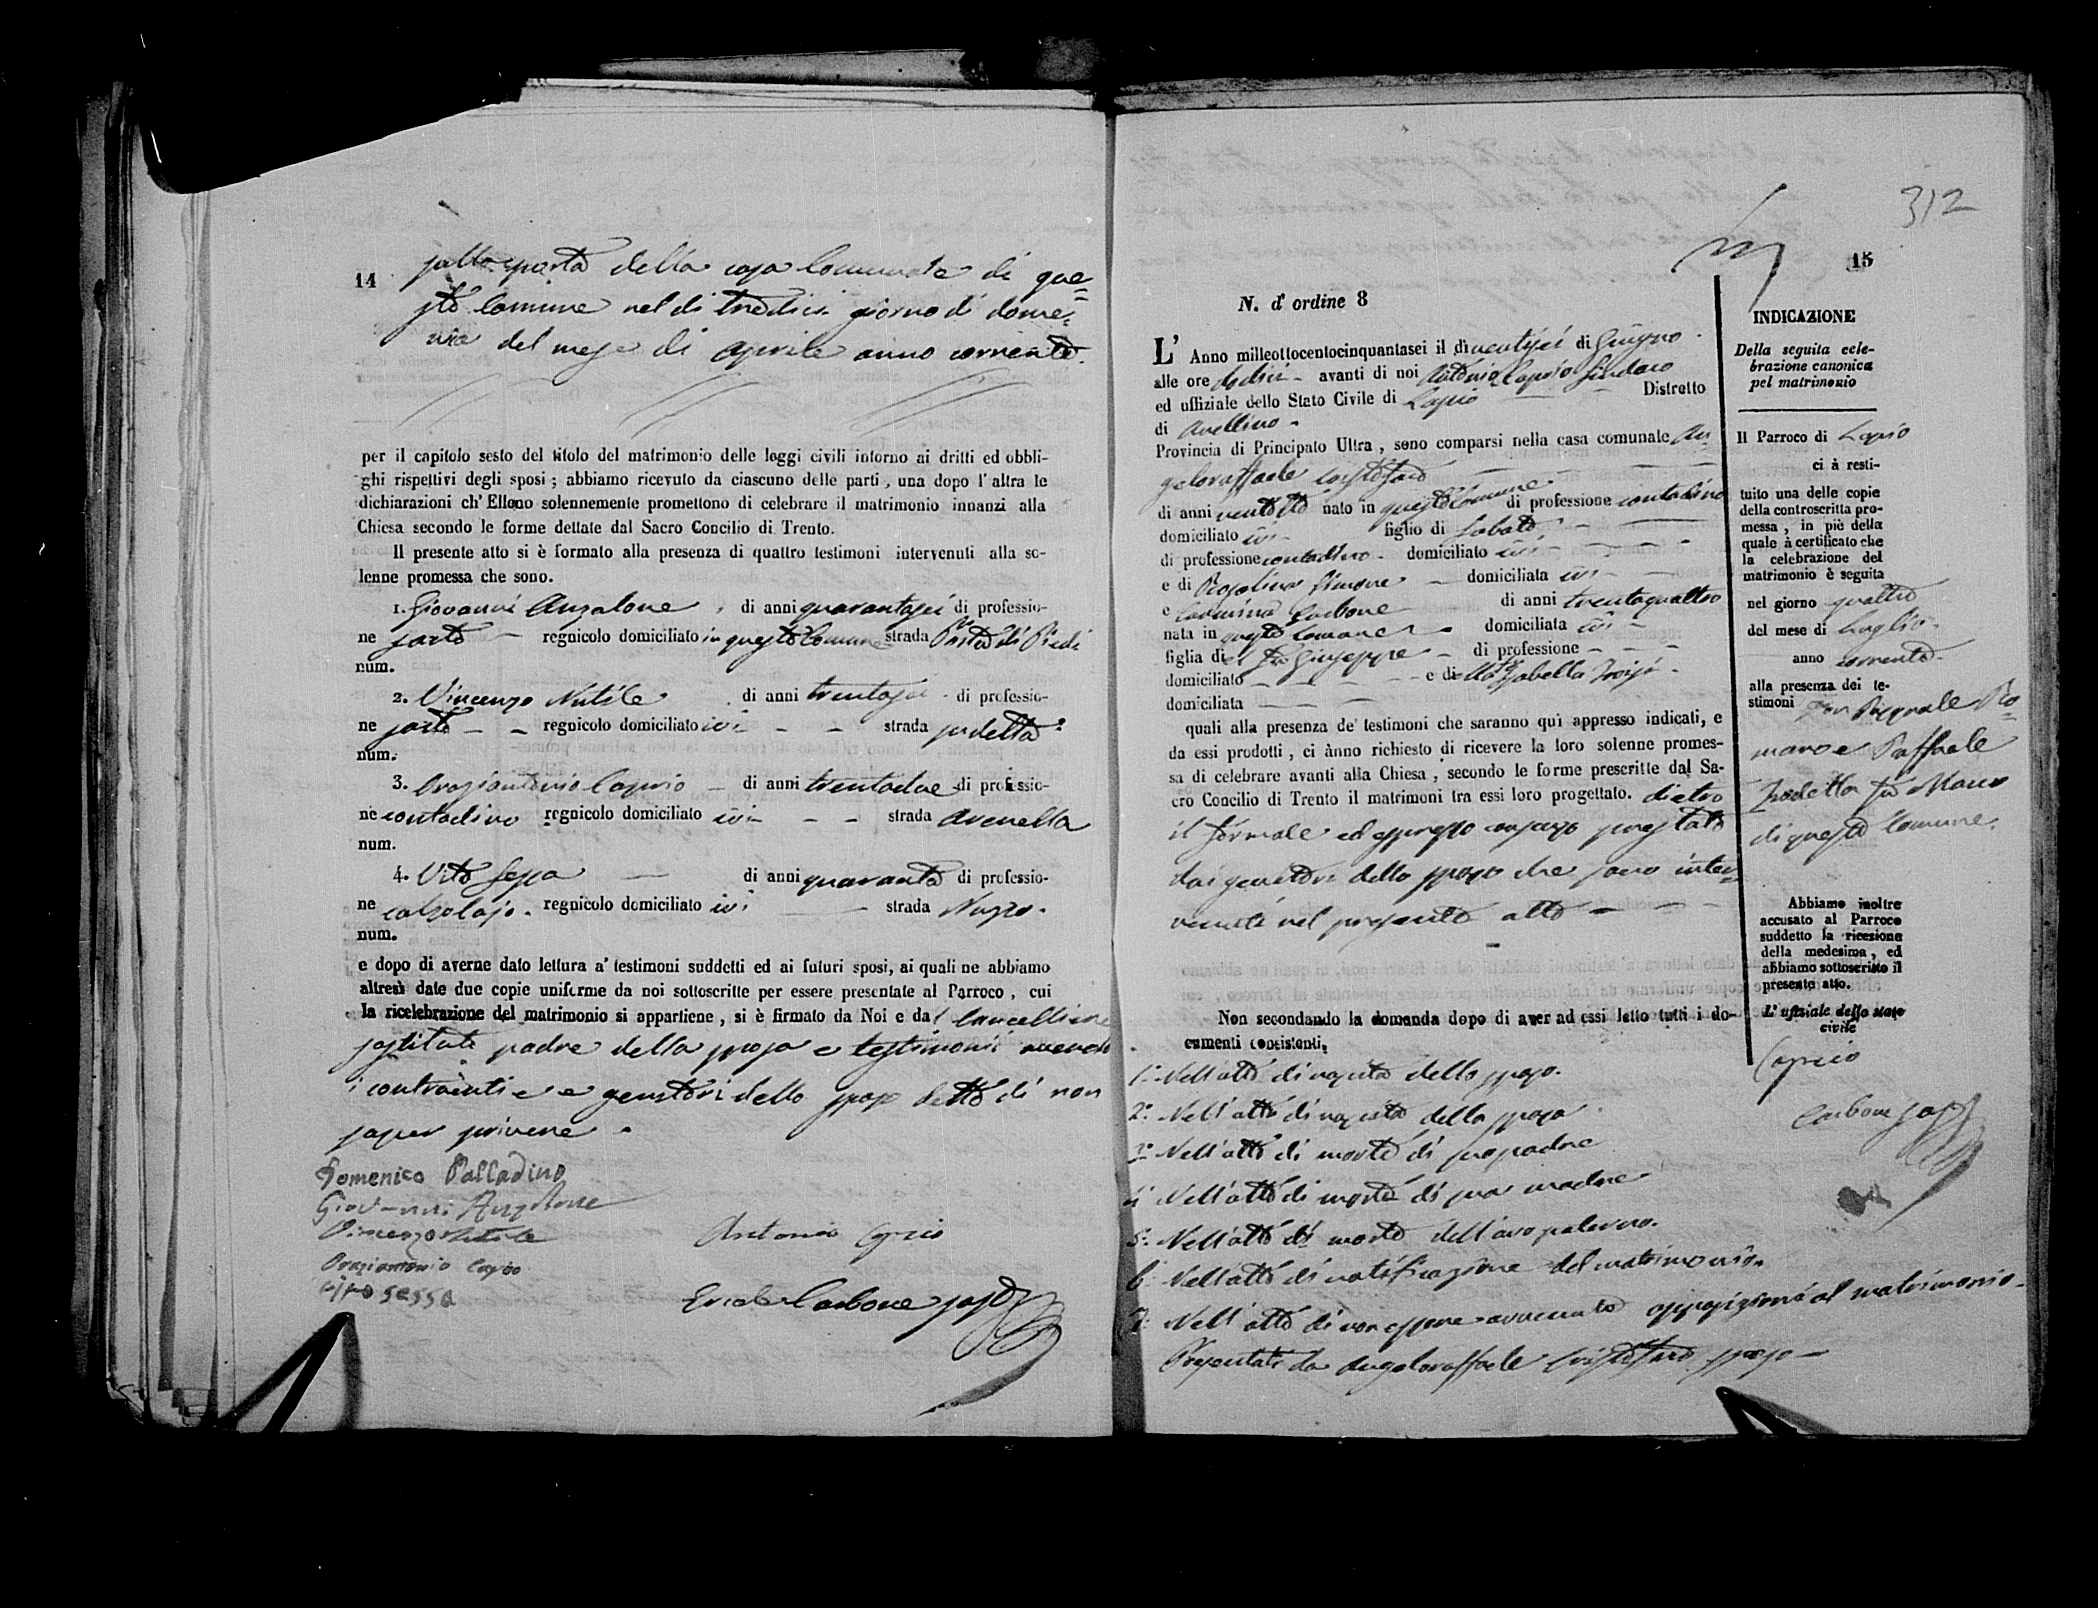 14
sulla porta della casa Comunale di que=
sto Comune nel di tredici giorno di dome=
nica del mese di Aprile anno corrente.
per il capitolo sesto del titolo del matrimonio delle leggi civili intorno ai dritti ed obbli-
ghi rispettivi degli sposi ; abbiamo ricevuto da ciascuno delle parti , una dopo l' altra le
dichiarazioni ch' Elleno solennemente promettono di celebrare il matrimonio innanzi alla
Chiesa secondo le forme dettate dal Sacro Concilio di Trento.
Il presente atto si è formato alla presenza di quattro testimoni intervenuti alla so-
lenne promessa che sono.
1. Giovanni Anzalone , di anni quarantasei di professio-
ne sarto – regnicolo domiciliato in questo Comune strada Porta di Piedi
num.
2. Vincenzo Nutile di anni trentasei di professio-
ne sarto – – regnicolo domiciliato ivi – – strada sudetta
num.
3. Oraziantonio Caprio – di anni trentadue di professio-
ne contadino regnicolo domiciliato ivi – – strada Avenella
num.
4. Vito Sessa — di anni quaranta di professio-
ne calzolajo . regnicolo domiciliato ivi — strada
num.
e dopo di averne dato lettura a' testimoni suddetti ed ai futuri sposi, ai quali ne abbiamo
altresì date due copie uniforme da noi sottoscritte per essere presentate al Parroco , cui
la ricelebrazione del matrimonio si appartiene , si è firmato da Noi e dal Cancelliere
sostituto padre della sposa e testimonii avendo
i contraenti e genitori dello sposo detto di non
saper scrivere .
Domenico Palladino
Giovanni Anzalone
Vincenzo Nutile
Oraziantonio Caprio
Vito Sessa
Antonio Caprio
Carbone sosto
312
15
N. d' ordine 8
L' Anno milleottocentocinquantasei il dì ventisei di Giugno
alle ore dodici – avanti di noi Antonio Caprio Sindaco
ed uffiziale dello Stato Civile di Lapio — – Distretto
di Avellino –
Provincia di Principato Ultra , sono comparsi nella casa comunale An=
geloraffaele Cristofaro — — —
di anni ventotto nato in questo Comune di professione contadino
domiciliato ivi – figlio di Sabato – —
di professione contadino – domiciliato ivi – – – –
e di Rosolina Simone – domiciliata ivi – –
e Carmina Carbone di anni trentaquattro
nata in questo Comune – domiciliata ivi –
figlia di fu Giuseppe – di professione – – –
domiciliato – – – – – e della fu Isabella Troisi –
domiciliata — — —
quali alla presenza de' testimoni che saranno quì appresso indicati, e
da essi prodotti , ci ànno richiesto di ricevere la loro solenne promes-
sa di celebrare avanti alla Chiesa , secondo le forme prescritte dal Sa-
cro Concilio di Trento il matrimoni tra essi loro progettato. dietro
il formale ed espresso consenso prestato
dai genitori dello sposo che sono inter=
venuti nel presente atto – – –
Non secondando la domanda dopo di aver ad essi letto tutti i do-
cumenti consistenti.
1.° Nell'atto di nascita dello sposo.
2.° Nell'atto di nascita della sposa.
3.° Nell'atto di morte di suo padre
4.° Nell'atto di morte di sua madre
5.° Nell'atto di morte dell'avo paterno.
6.° Nell'atto di notificazione del matrimonio.
7.° Nell'atto di non essere avvenuta opposizione al matrimonio –
Presentati da Angeloraffaele Cristofaro sposo –
INDICAZIONE
Della seguita cele-
brazione canonica
pel matrimonio
Il Parroco di Lapio
ci à resti-
tuito una delle copie
della controscritta pro-
messa , in piè della
quale à certificato che
la celebrazione del
matrimonio è seguita
nel giorno quattro
del mese di Luglio –
anno corrente –
alla presenza dei te-
stimoni Pasquale Ro=
mano e Raffaele
fu Marco
di questo Comune.
Abbiamo inoltre
accusato al Parroco
suddetto la ricezione
della medesima , ed
abbiamo sottoscritto il
presente atto.
L' ufiziale dello stato
civile
Caprio
Carbone sosto